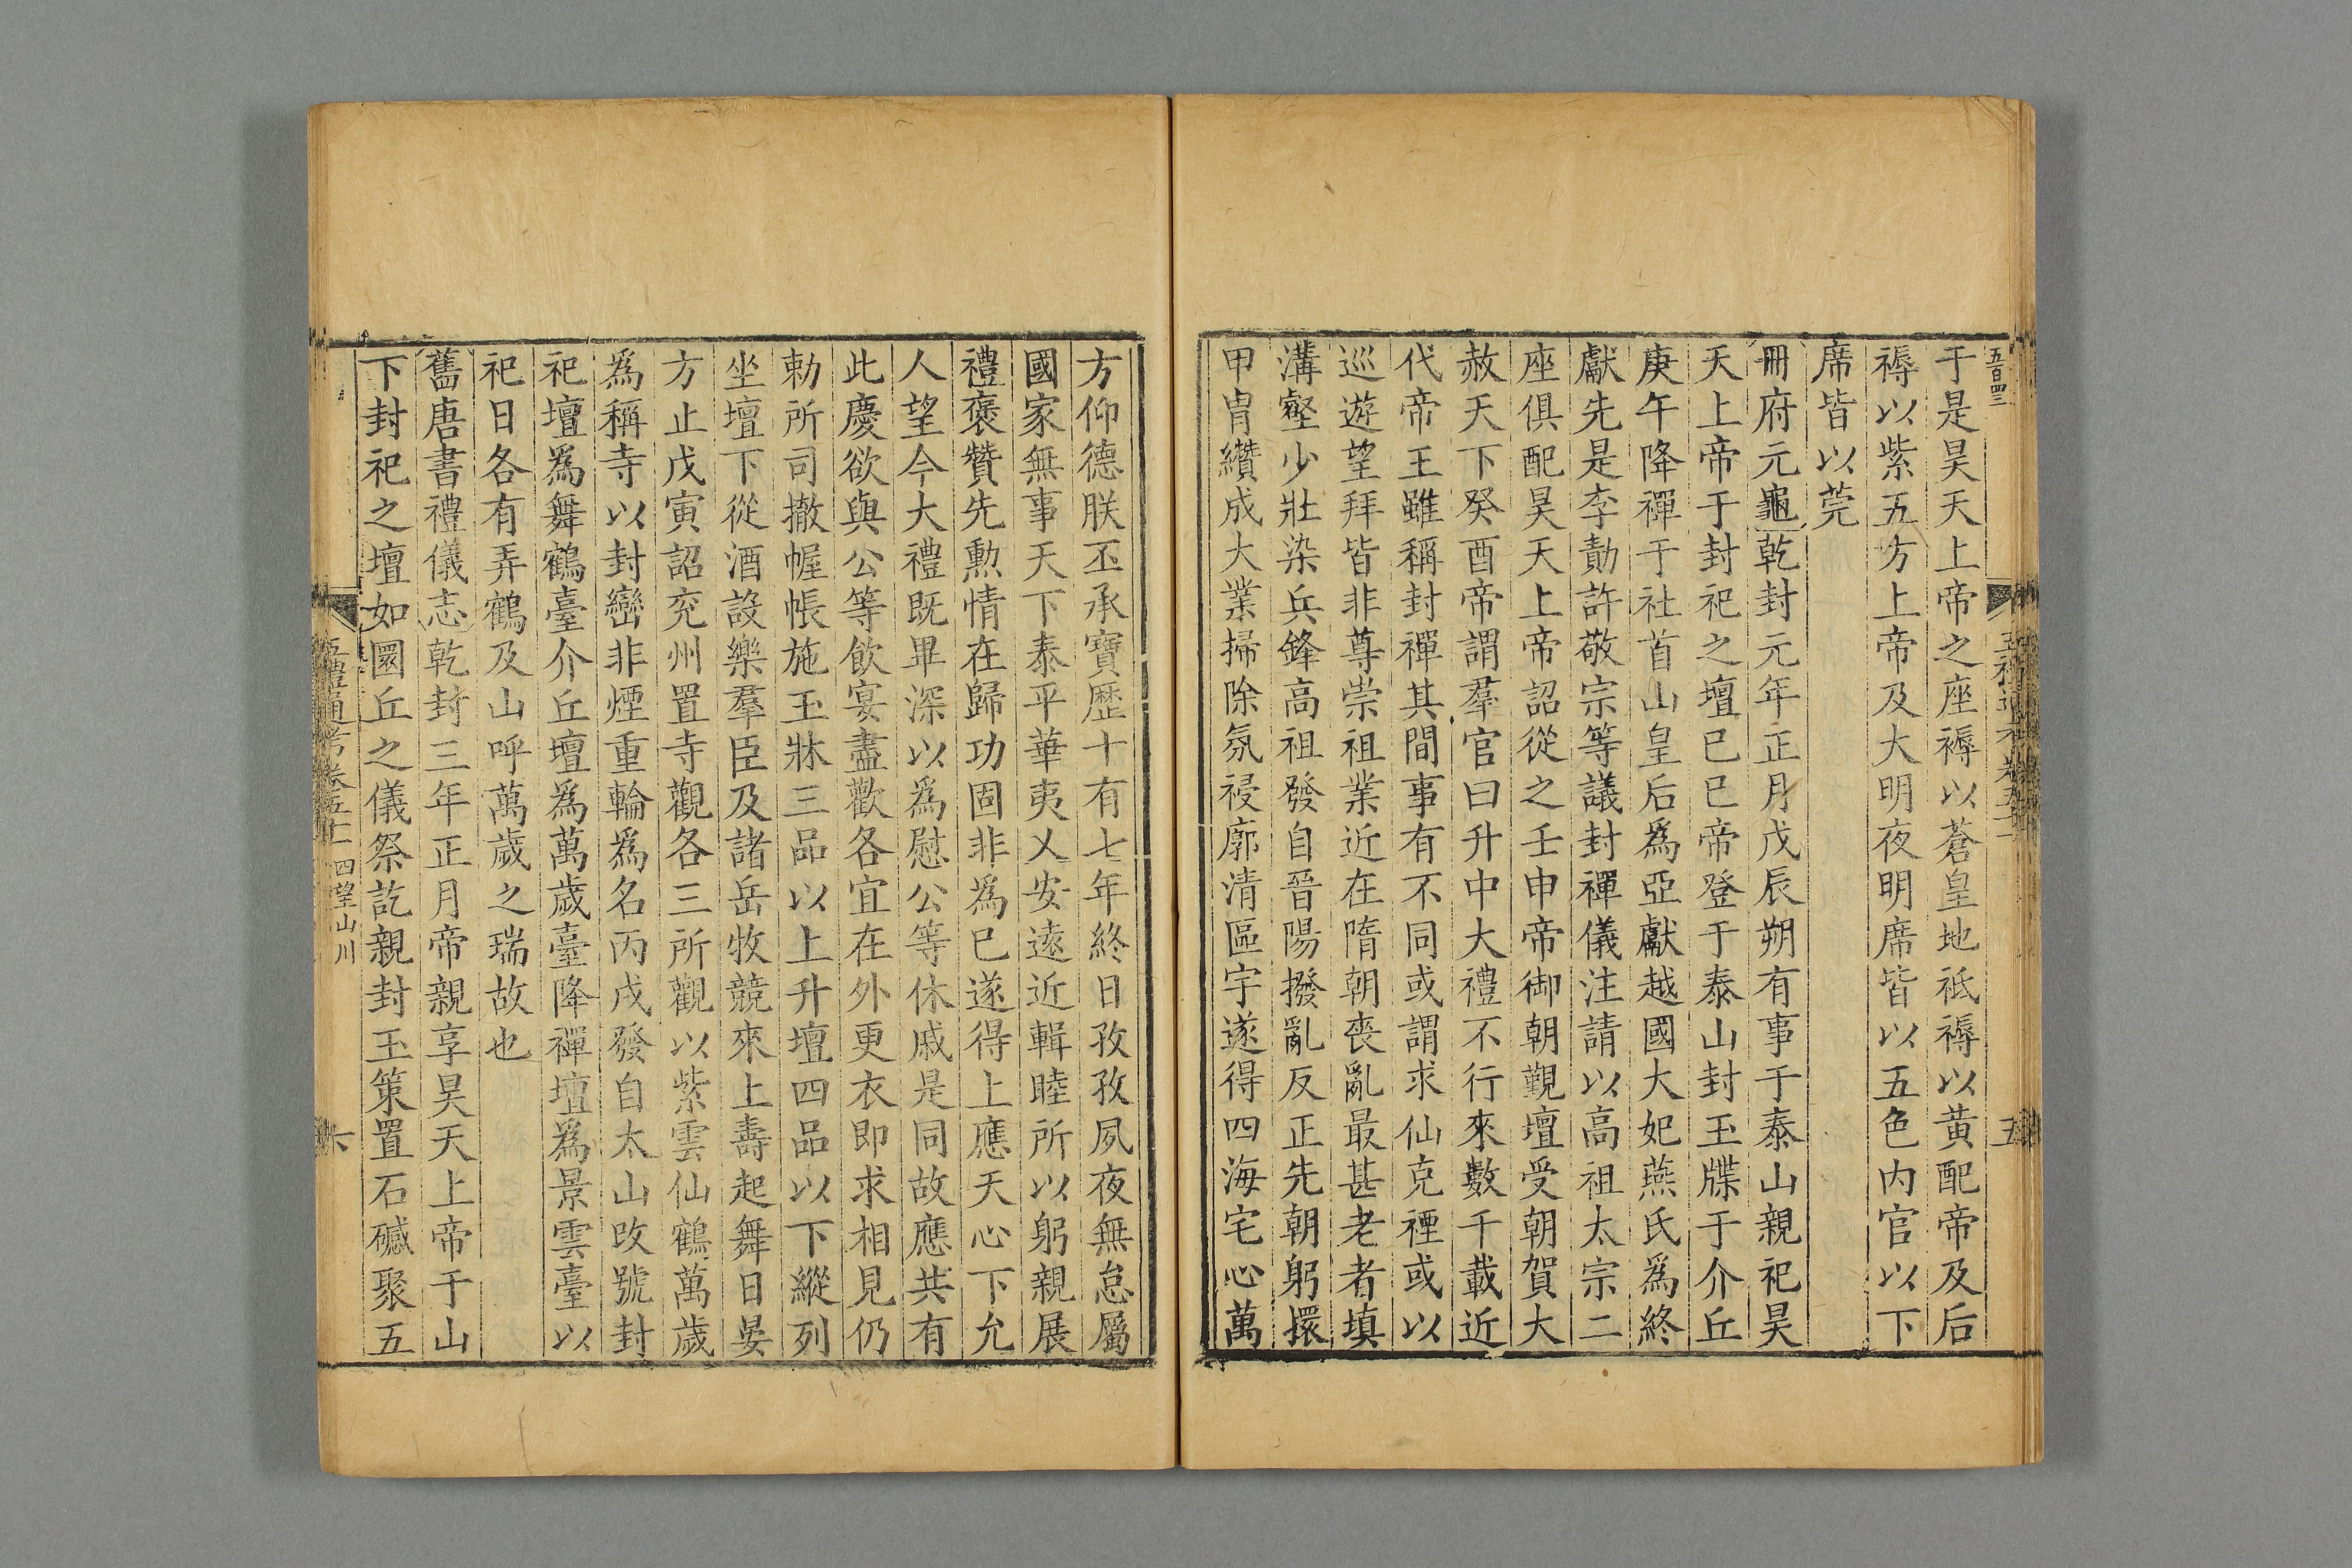 五百四三
于是昊天上帝之座褥以蒼皇地祗褥以黄配帝及后
褥以紫五方上帝及大明夜明席皆以五色内官以下
席皆以莞
冊府元龜乾封元年正月戊辰朔有事于泰山親祀昊
天上帝于封祀之壇己巳帝登于泰山封玉牒于介丘
庚午降禪于社首山皇后為亞獻越國大妃燕氏為終
獻先是李勣許敬宗等議封禪儀注請以高祖太宗二
座俱配昊天上帝詔從之壬申帝御朝覲壇受朝賀大
赦天下癸酉帝謂羣官曰升中大禮不行來數千載近
代帝王雖稱封禪其間事有不同或謂求仙克禋或以
巡遊望拜皆非尊崇祖業近在隋朝喪亂最甚老者填
溝壑少壯染兵鋒高祖發自晉陽撥亂反正先朝躬擐
甲冑纘成大業掃除氛祲廓清區宇遂得四海宅心萬
方仰德朕丕承寶歴十有七年終日孜孜夙夜無怠屬
國家無事天下泰平華夷乂安逺近輯睦所以躬親展
禮褒贊先勲情在歸功固非為已遂得上應天心下允
人望今大禮既畢深以為慰公等休戚是同故應共有
此慶欲與公等飲宴盡歡各宜在外更衣即求相見仍
勅所司撤幄帳施玉牀三品以上升壇四品以下縱列
坐壇下從酒設樂羣臣及諸岳牧競來上壽起舞日晏
方止戊寅詔兖州置寺觀各三所觀以紫雲仙鶴萬歲
為稱寺以封巒非煙重輪為名丙戌發自太山改號封
祀壇為舞鶴臺介丘壇為萬歲臺降禪壇為景雲臺以
祀日各有弄鶴及山呼萬歲之瑞故也
舊唐書禮儀志乾封三年正月帝親享昊天上帝于山
下封祀之壇如圜丘之儀祭訖親封玉策置石䃭聚五
五禮通考卷五十一 四望山川 六